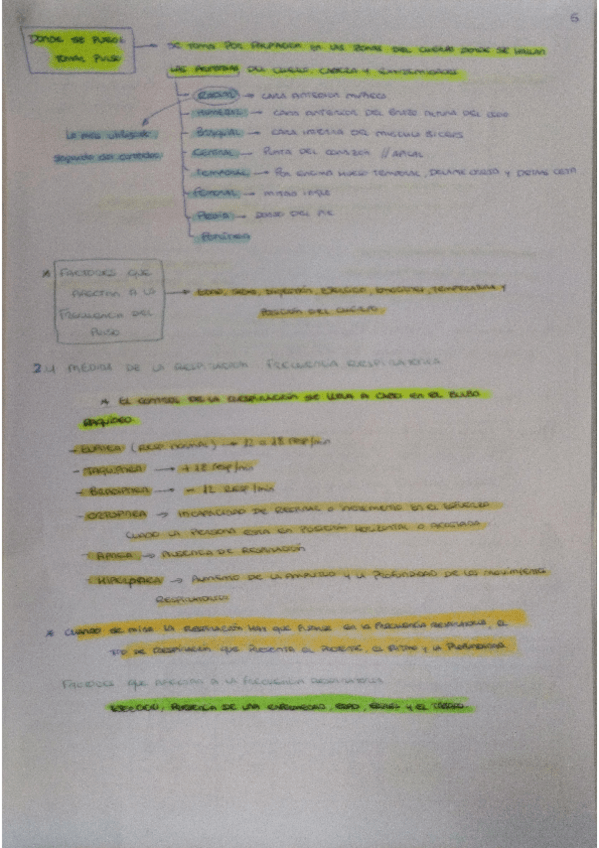 5
DONDE SE PUEDE
TOMAR PULSO
SE TOMA POR PALPACIÓN EN LAS ZONAS DEL CUERPO DONDE SE HALLAN
LAS ARTERIAS DEL CUELLO, CABEZA Y EXTREMIDADES
RADIAL → CARA ANTERIOR MUÑECA
HUMERAL → CARA ANTERIOR DEL BRAZO ALTURA DEL CODO
LA MÁS UTILIZADA,
BRAQUIAL → CARA INTERNA DEL MUSCULO BICEPS
SEGUNDO DOS CAROTIDEO
CENTRAL → PUNTA DEL CORAZÓN // APICAL
TEMPORAL → POR ENCIMA HUESO TEMPORAL, DELANTE OREJA Y DETRAS CEJA
FEMORAL → MITAD INGLE
PEDIA → DORSO DEL PIE
POPLÍTEA
* FACTORES QUE
AFECTAN A LA
FRECUENCIA DEL
PULSO
→ EDAD, SEXO, DIGESTIÓN, EJERCICIO, EMOCIONES, TEMPERATURA Y
POSICIÓN DEL CUERPO
2.4 MEDIDA DE LA RESPIRACIÓN. FRECUENCIA RESPIRATORIA
* EL CONTROL DE LA RESPIRACIÓN SE LLEVA A CABO EN EL BULBO
RAQUÍDEO
- EUPNEA (RESP. NORMAL) → 12 a 18 resp/min
- TAQUIPNEA → + 18 resp/min
- BRADIPNEA → - 12 RESP/min
- ORTOPNEA → INCAPACIDAD DE RESPIRAR O INCREMENTO EN EL ESFUERZO
CUANDO LA PERSONA ESTA EN POSICIÓN HORIZONTAL O ACOSTADA
- APNEA → AUSENCIA DE RESPIRACIÓN
- HIPERPNEA → AUMENTO DE LA AMPLITUD Y LA PROFUNDIDAD DE LOS MOVIMIENTOS
RESPIRATORIOS
* CUANDO SE MIDA LA RESPIRACIÓN HAY QUE FIJARSE EN LA FRECUENCIA RESPIRATORIA, EL
TIPO DE RESPIRACIÓN QUE PRESENTA EL PACIENTE, EL RITMO Y LA PROFUNDIDAD
FACTORES QUE AFECTAN A LA FRECUENCIA RESPIRATORIA
EJERCICIO, PRESENCIA DE UNA ENFERMEDAD, EDAD, ESTRÉS Y EL TABACO